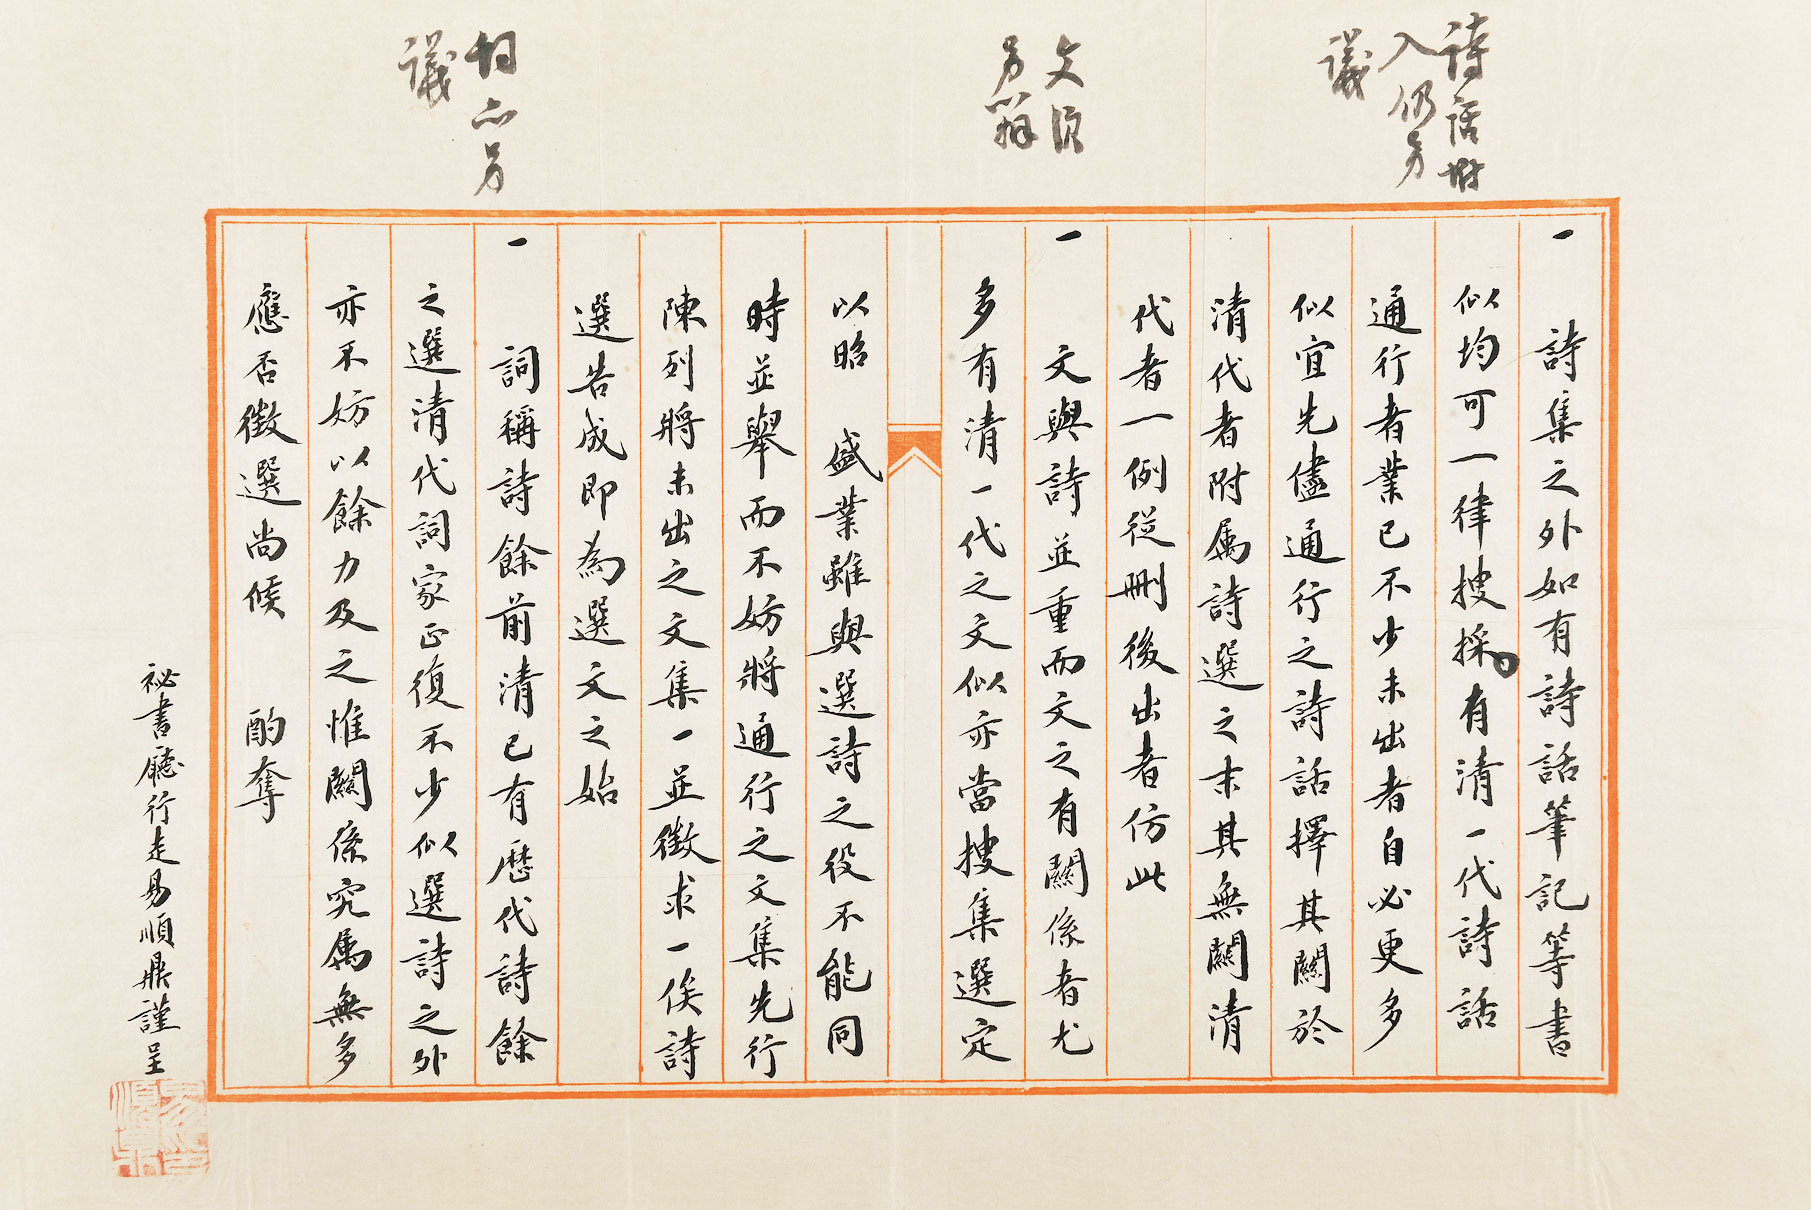 詩話附
入仍另
議
文須
另辦
詞亦另
議
一　詩集之外如有詩話筆記等書
似均可一律搜採有清一代詩話
通行者業已不少未出者自必更多
似宜先儘通行之詩話擇其關於
清代者附屬詩選之末其無關清
代者一例從刪後出者仿此
一　文與詩並重而文之有關係者尤
多有清一代之文似亦當搜集選定
以昭　盛業雖與選詩之役不能同
時並舉而不妨將通行之文集先行
陳列將未出之文集一並徵求一俟詩
選告成即為選文之始
一　詞稱詩餘前清已有歷代詩餘
之選清代詞家正復不少似選詩之外
亦不妨以餘力及之惟關係究屬無多
應否徵選尚候　酌奪
祕書廳行走易順鼎謹呈